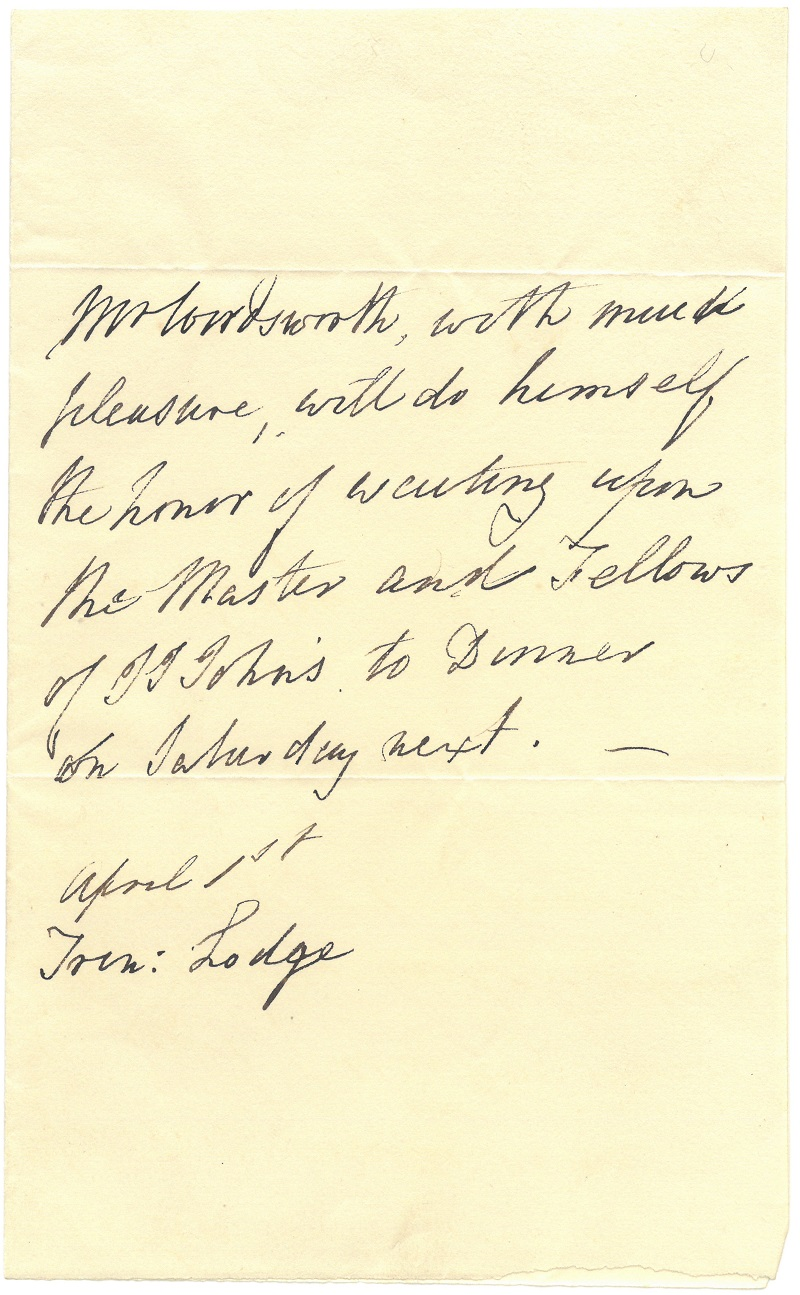 Mr Wordsworth, with much
pleasure, will do himself
the honor of waiting upon
the Master and Fellows
of St John's to Dinner
on Saturday next. —
April 1st
Trin: Lodge